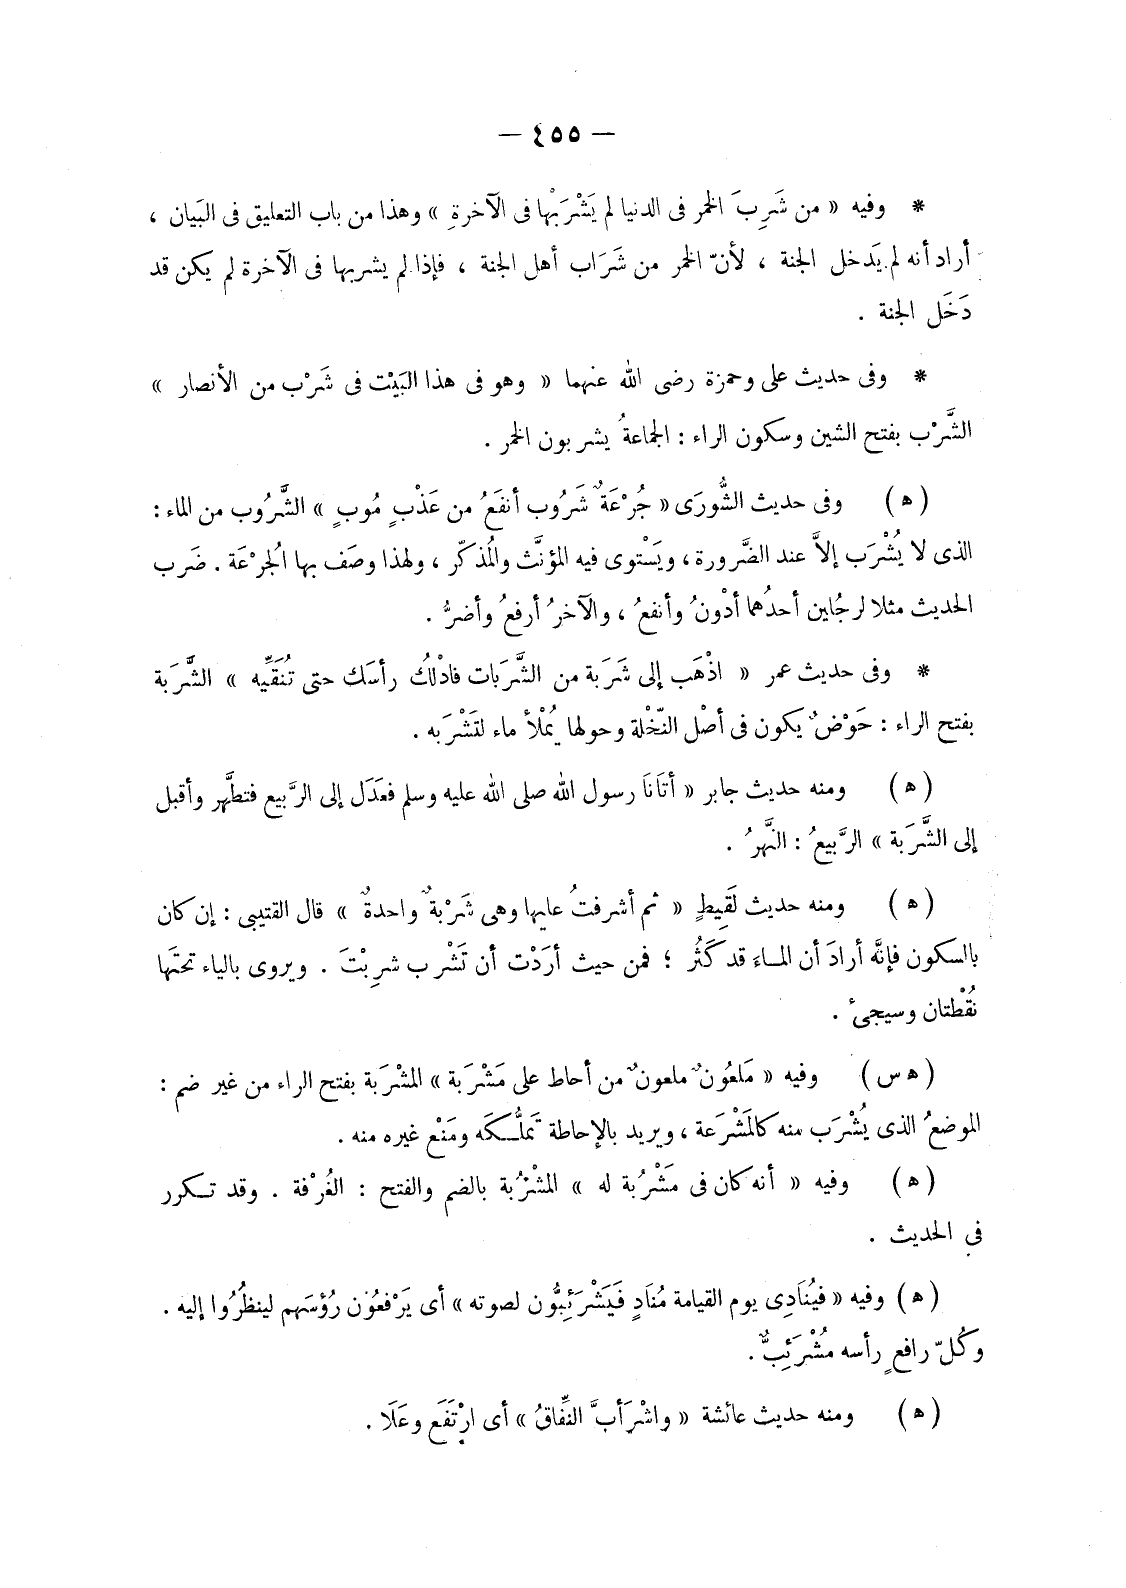 — ٤٥٥ —
* وفيه « من شَرِبَ الخمر فى الدنيا لم يَشْرَبْها فى الآخرةِ » وهذا من باب التعليق فى البَيان ،
أراد أنه لم يَدخل الجنة ، لأنّ الخمر من شَرَاب أهل الجنة ، فإذا لم يشربها فى الآخرة لم يكن قد
دَخَل الجنة .
* وفى حديث على وحمزة رضى الله عنهما « وهو فى هذا البَيْت فى شَرْب من الأنصار »
الشَّرْب بفتح الشين وسكون الراء : الجماعةُ يشربون الخمر .
( ه ) وفى حديث الشُّورَى « جُرْعَةٌ شَرُوب أنفَعُ من عَذْبٍ مُوبٍ » الشَّرُوب من الماء :
الذى لا يُشْرَب إلاَّ عند الضَّرورة ، ويَسْتوى فيه المؤنَّث والمُذكّر ، ولهذا وصَف بها الجُرْعَة . ضَرب
الحديث مثلا لرجُلين أحدُهما أدْونُ وأنفعُ ، والآخرُ أرفعُ وأضرُّ .
* وفى حديث عمر « اذْهَب إلى شَرَبة من الشَّرَبات فادْلُك رأسَك حتى تُنَقِّيَه » الشَّرَبة
بفتح الراء : حَوْضٌ يكون فى أصْل النَّخْلة وحولها يُمْلأ ماء لتَشْرَبه .
( ه ) ومنه حديث جابر « أتَانَا رسول الله صلى الله عليه وسلم فعَدَل إلى الرَّبيع فتطَهَّر وأقبل
إلى الشَّرَبة » الرَّبيعُ : النَّهرُ .
( ه ) ومنه حديث لَقِيطٍ « ثم أشرفتُ عليها وهى شَرْبةٌ واحدةٌ » قال القتيبى : إن كان
بالسكون فإنَّه أرادَ أن المـاءَ قد كَثُر ؛ فمن حيث أرَدْت أن تَشْرب شرِبْتَ . ويروى بالياء تحتَها
نُقْطتان وسيجىءُ .
( ه س ) وفيه « مَلعُونٌ ملعونٌ من أحاط على مَشْرَبة » المشْرَبة بفتح الراء من غير ضم :
الموضعُ الذى يُشْرَب منه كالمَشْرَعة ، ويريد بالإحاطة تَملُّـكَه ومَنْع غيره منه .
( ه ) وفيه « أنه كان فى مَشْرُبة له » المشْرُبة بالضم والفتح : الغُرْفة . وقد تـكرر
فى الحديث .
( ه ) وفيه « فيُنَادِى يوم القيامة مُنَادٍ فَيَشْرَئِبُّون لصوته » أى يَرْفعُون رُؤسَهم لينظُرُوا إليه .
وكُلّ رافعٍ رأسه مُشْرَئِبٌّ .
( ه ) ومنه حديث عائشة « واشْرَأبَّ النِّفاقُ » أى ارْتَفَع وعَلَا .